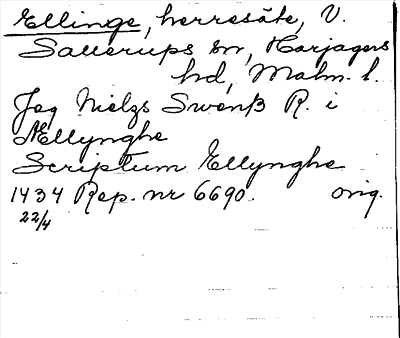 Ellinge, herresäte, V.
Sallerups sn, Harjagers
hd, Malm. l.
Jag Nielzs Swenß R. i
Ællynghe
Scriptum Ellynghe
1434 Rep. nr 6690. orig.
22/4